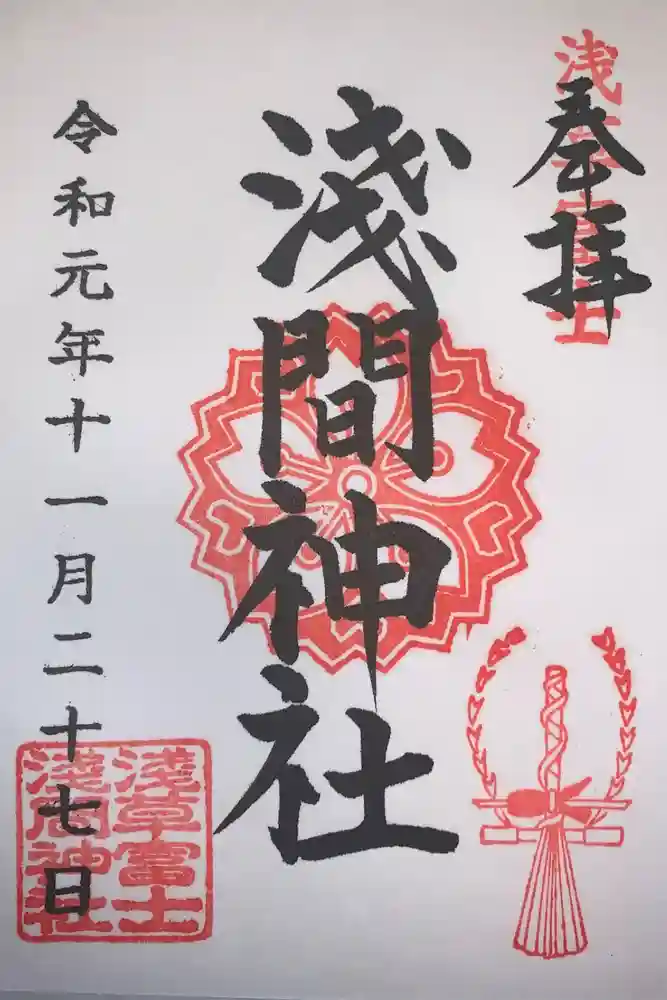 浅草富士
奉拝
淺間神社
令和元年十一月二十七日
浅草富士
淺間神社